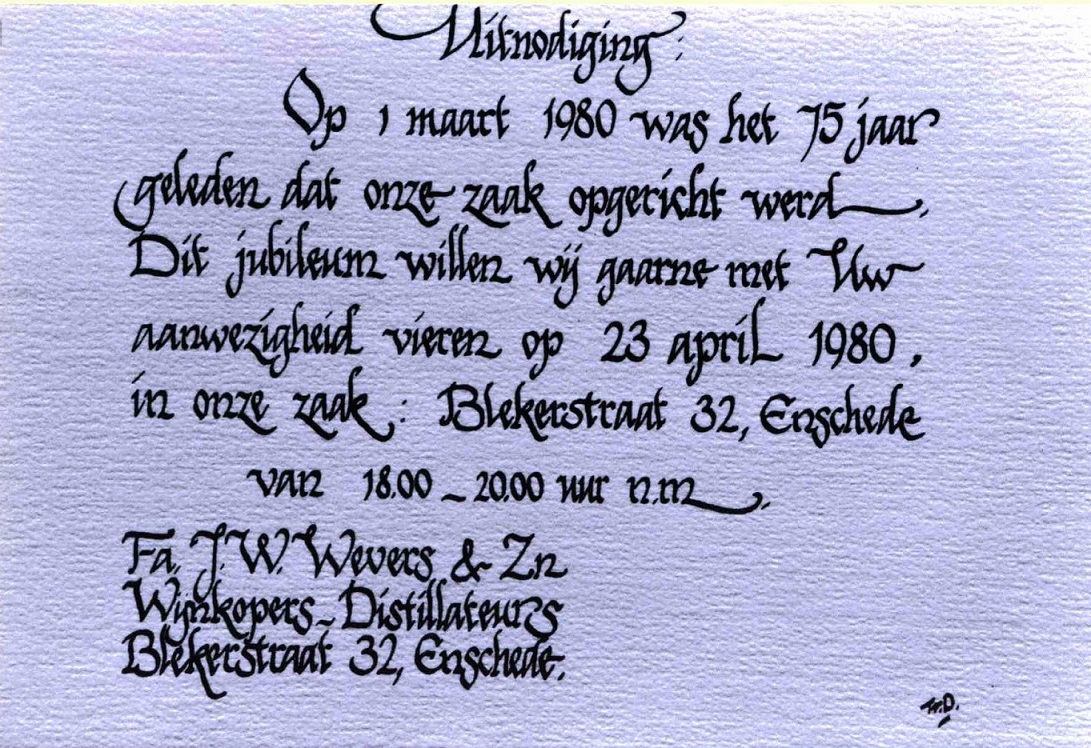 Uitnodiging:
Op 1 maart 1980 was het 75 jaar
geleden dat onze zaak opgericht werd.
Dit jubileum willen wij gaarne met Uw
aanwezigheid vieren op 23 april 1980,
in onze zaak: Blekerstraat 32, Enschede
van 18.00 - 20.00 uur n.m.
Fa. J.W. Wevers & Zn
Wijnkopers - Distillateurs
Blekerstraat 32, Enschede.